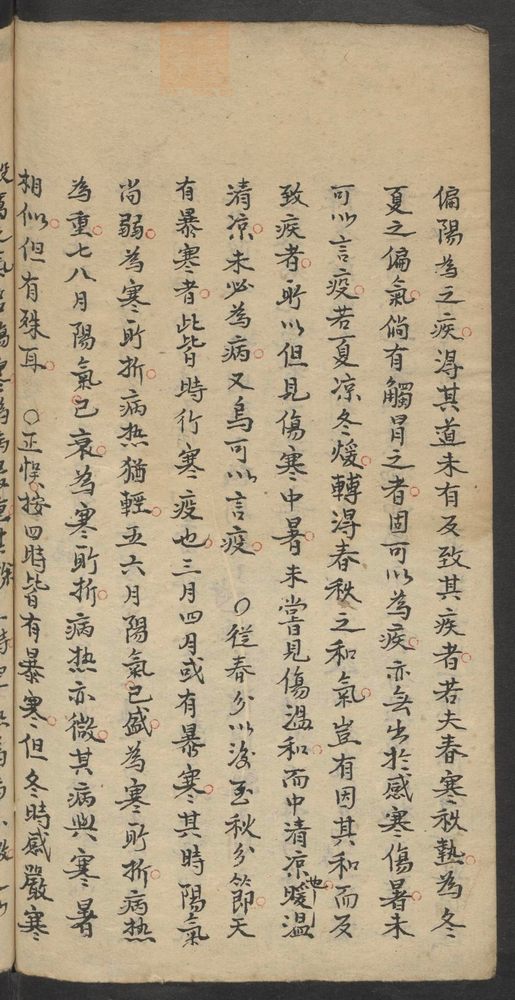 偏陽為之疾得其道未有反致其疾者若夫春寒秋熱為冬
夏之偏氣倘有觸冒之者固可以為疾亦無出於感寒傷暑未
可以言疫若夏凉冬煖轉得春秋之和氣豈有因其和而反
致疾者所以但見傷寒中暑未嘗見傷温和而中清凉也暖温
清凉未必為病又烏可以言疫　○從春分以後至秋分節天
有暴寒者此皆時行寒疫也三月四月或有暴寒其時陽氣
尚弱為寒所折病热猶輕五六月陽氣已盛為寒所折病热
為重七八月陽氣已衰為寒所折病热亦微其病與寒暑
相似但有殊耳　○正悞按四時皆有暴寒但冬時感嚴寒